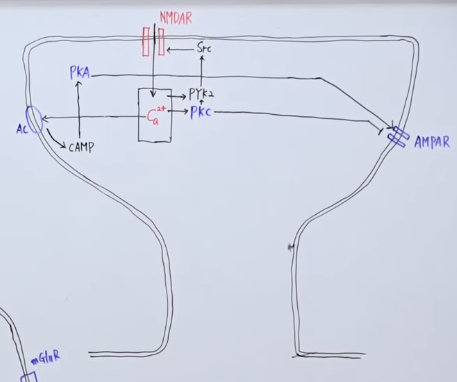 NMDAR
Src
PKA
PYK2
Ca2+
PKC
AC
cAMP
AMPAR
mGluR